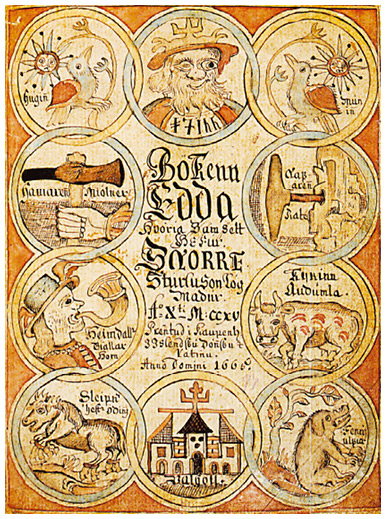 Hugin
Mun
in
Hamaren Miolner
Bokenn
Edda
Hvoria Samsett
Hefur
SNORRE
Sturlu Son Lög
Madur.
Aº Xⁱ M. CCXV
Prentud i Kaupenh
Islensku Donsku &
Latinu.
Anno Domini 166
Heimdall
Giallar
Horn
Kyrinn
Audumla.
Sleipn
hest Odins
Valholl